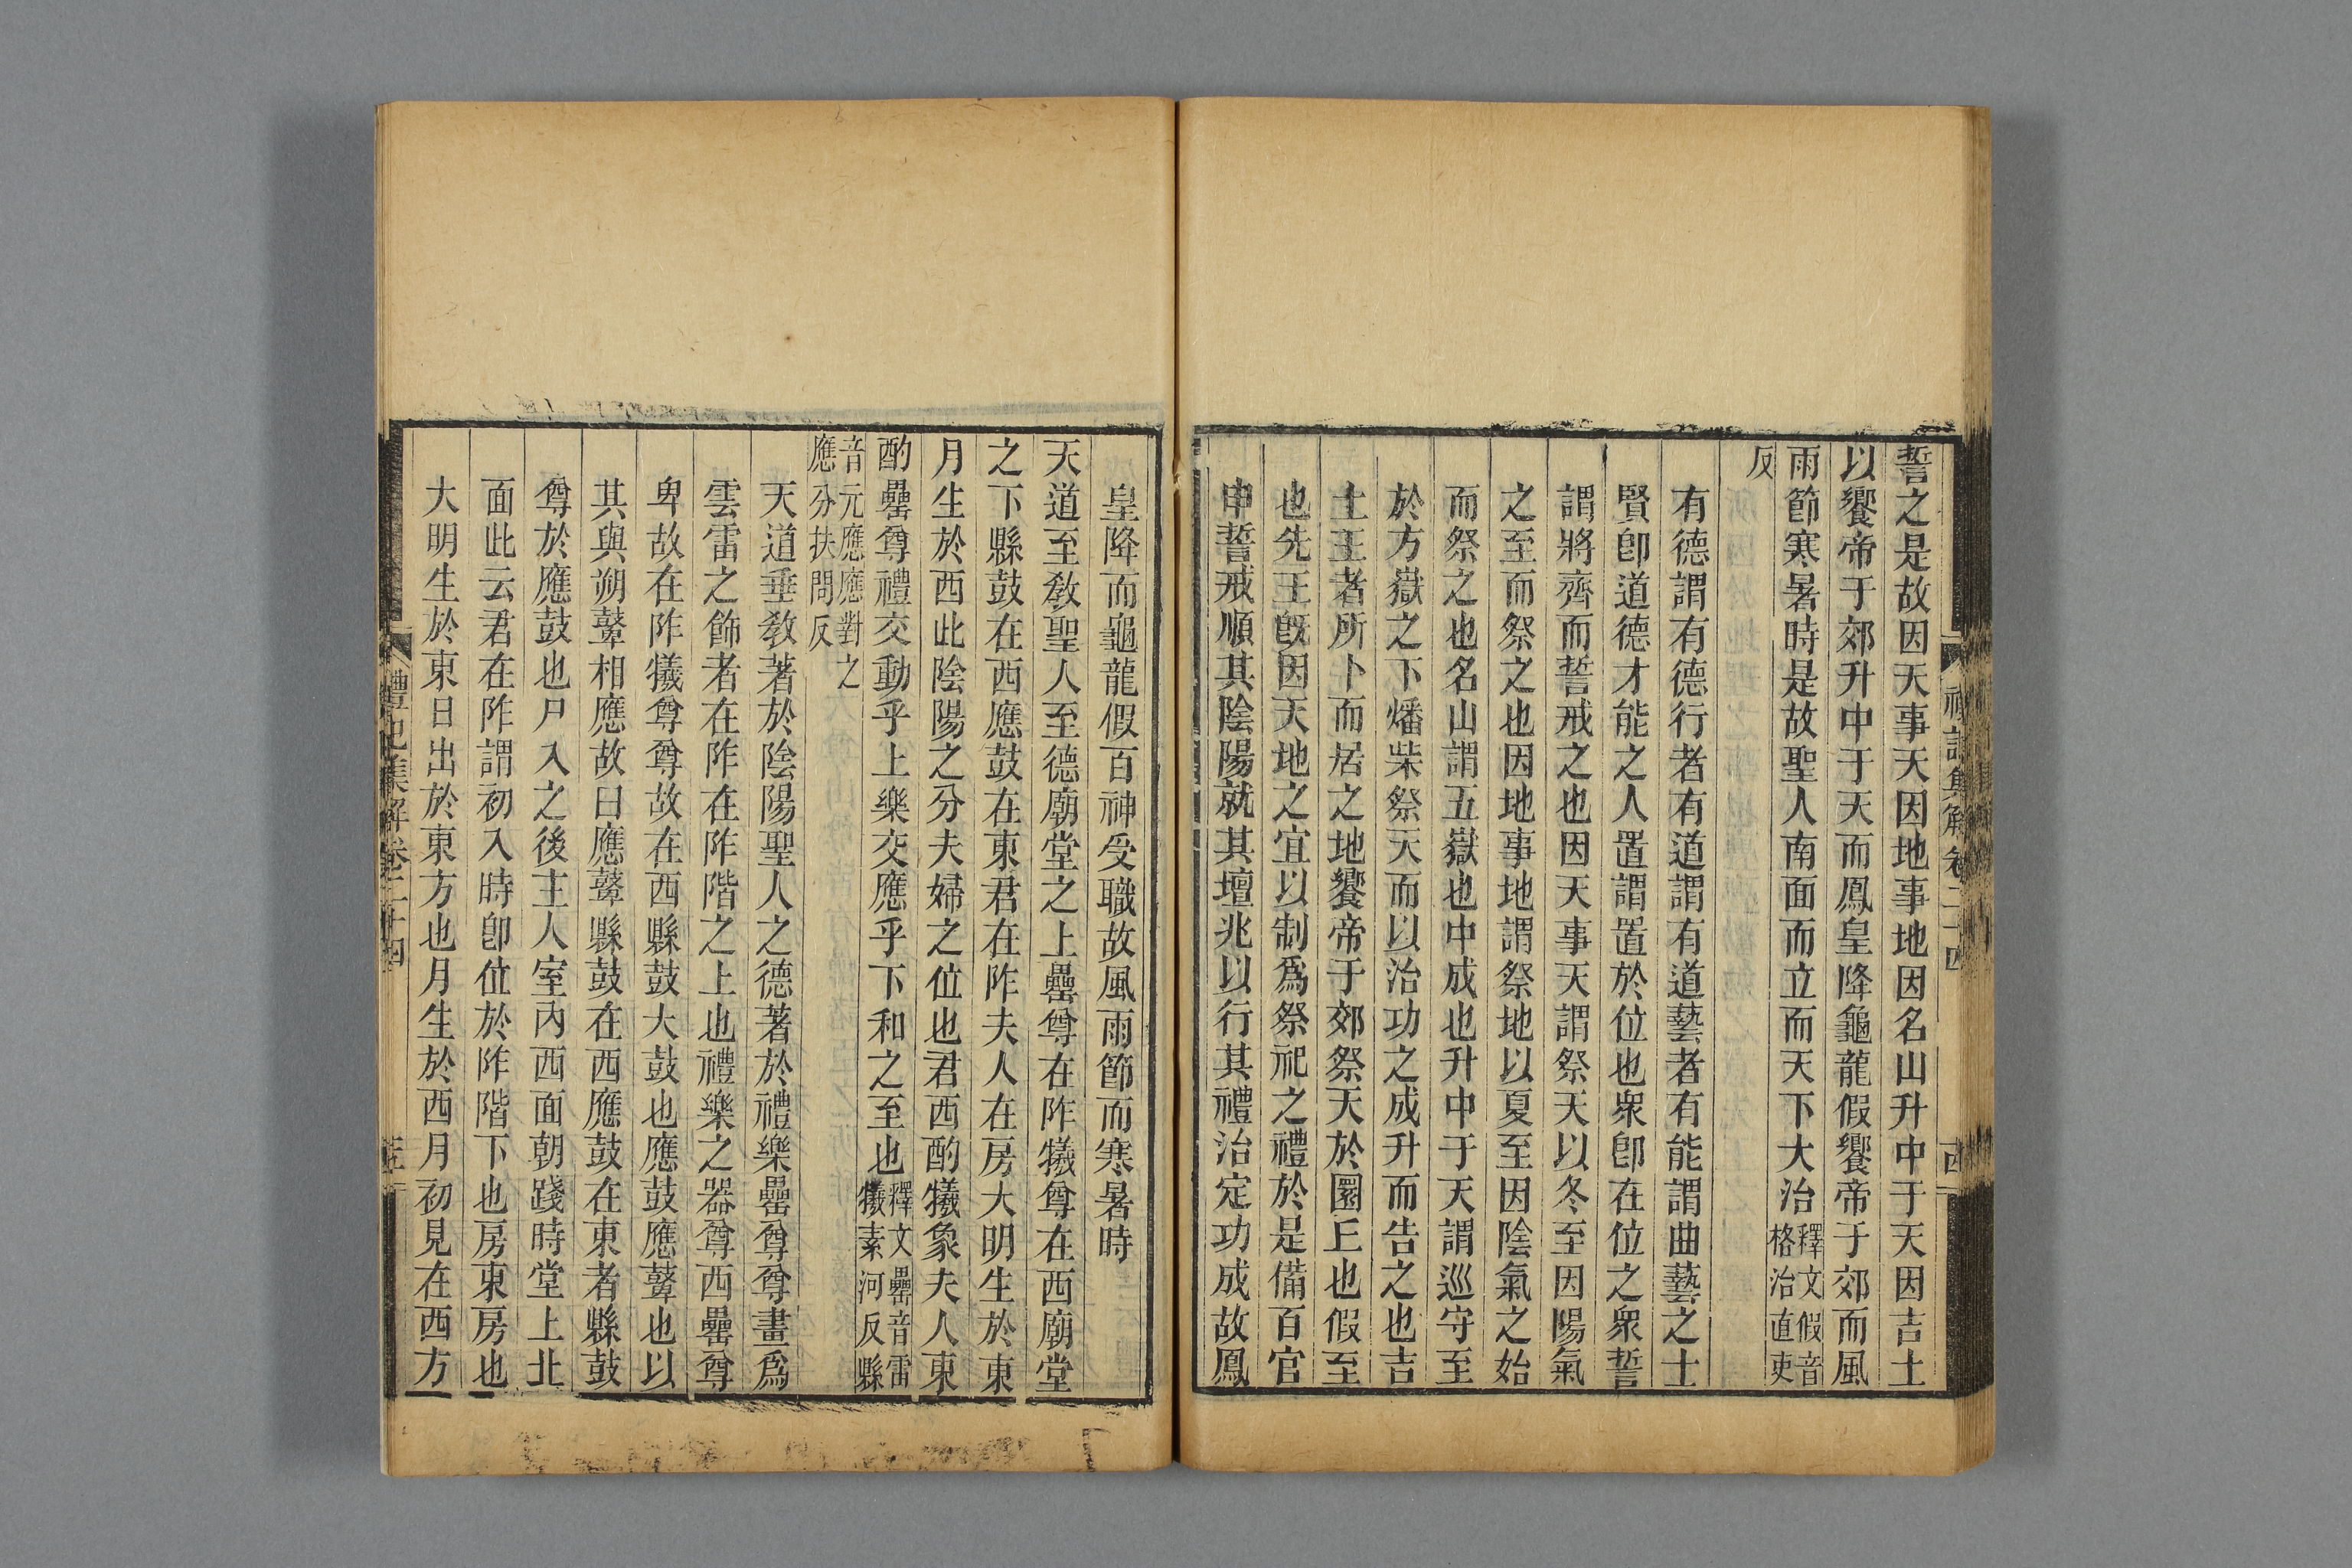 誓之是故因天事天因地事地因名山升中于天因吉土
以饗帝于郊升中于天而鳳皇降龜龍假饗帝于郊而風
雨節寒暑時是故聖人南面而立而天下大治釋文假音格治直吏
反
有德謂有德行者有道謂有道藝者有能謂曲藝之士
賢卽道德才能之人置謂置於位也衆卽在位之衆誓
謂將齊而誓戒之也因天事天謂祭天以冬至因陽氣
之至而祭之也因地事地謂祭地以夏至因陰氣之始
而祭之也名山謂五嶽也中成也升中于天謂巡守至
於方嶽之下燔柴祭天而以治功之成升而告之也吉
土王者所卜而居之地饗帝于郊祭天於圜丘也假至
也先王旣因天地之宜以制爲祭祀之禮於是備百官
申誓戒順其陰陽就其壇兆以行其禮治定功成故鳳
皇降而龜龍假百神受職故風雨節而寒暑時
天道至敎聖人至德廟堂之上罍尊在阼犧尊在西廟堂
之下縣鼓在西應鼓在東君在阼夫人在房大明生於東
月生於西此陰陽之分夫婦之位也君西酌犧象夫人東
酌罍尊禮交動乎上樂交應乎下和之至也釋文罍音雷犧素河反縣
音元應應對之應分扶問反
天道垂敎著於陰陽聖人之德著於禮樂罍尊尊畫爲
雲雷之飾者在阼在阼階之上也禮樂之器尊西罍尊
卑故在阼犧尊尊故在西縣鼓大鼓也應鼓應鼙也以
其與朔鼙相應故曰應鼙縣鼓在西應鼓在東者縣鼓
尊於應鼓也尸入之後主人室內西面朝踐時堂上北
面此云君在阼謂初入時卽位於阼階下也房東房也
大明生於東日出於東方也月生於西月初見在西方
禮記集解卷二十四
五